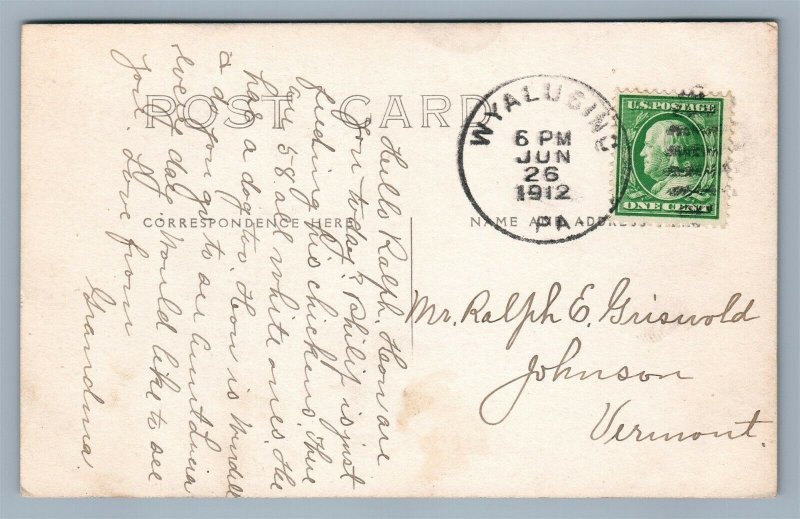 POST CARD
CORRESPONDENCE HERE
NAME AND ADDRESS HERE
WYALUSING
6 PM
JUN
26
1912
PA
U.S. POSTAGE
ONE CENT
Mr. Ralph E. Griswold
Johnson
Vermont.
Hello Ralph. How are
you to-day? Philip is just
feeding his chickens. There
are 58 all white ones. He
has a dog too. How is
& do you go to see Aunt Lucia
every day. Would like to see
you. Love from
Grandma.